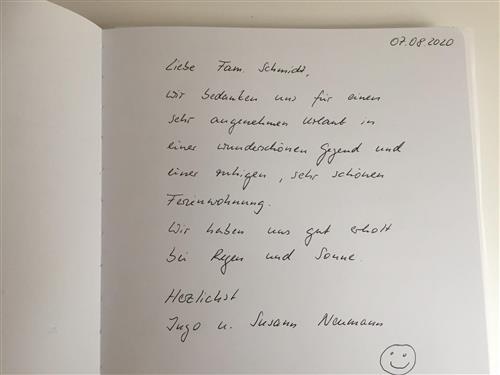 07.08.2020
Liebe Fam. Schmidt,
Wir bedanken uns für einen
sehr angenehmen Urlaub in
einer wunderschönen Gegend und
einer ruhigen, sehr schönen
Ferienwohnung.
Wir haben uns gut erholt
bei Regen und Sonne.
Herzlichst
Ingo u. Susann Neumann